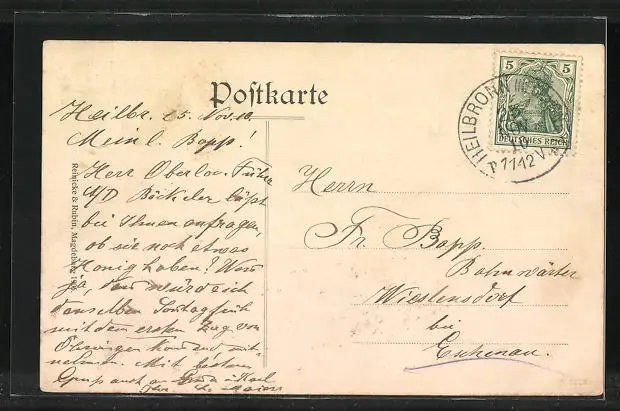 Postkarte
Heilbr. 15. Nov. 10.
Mein l. Bapp!
Herr Oberlok. Führer
A/D Böckeler läßt
bei Ihnen anfragen,
ob sie noch etwas
Honig haben? Wenn
ja, dann würde ich
denselben Sonntag früh
mit dem ersten Zug von
Öhringen kommend mit-
nehmen. Mit bestem
Gruß auch an
Reinicke & Rubin, Magdeburg
5 5
DEUTSCHES REICH
HEILBRONN
11-12 V
Herrn
Fr. Bapp.
Bahnwärter
Wieslensdorf
bei
Eschenau.